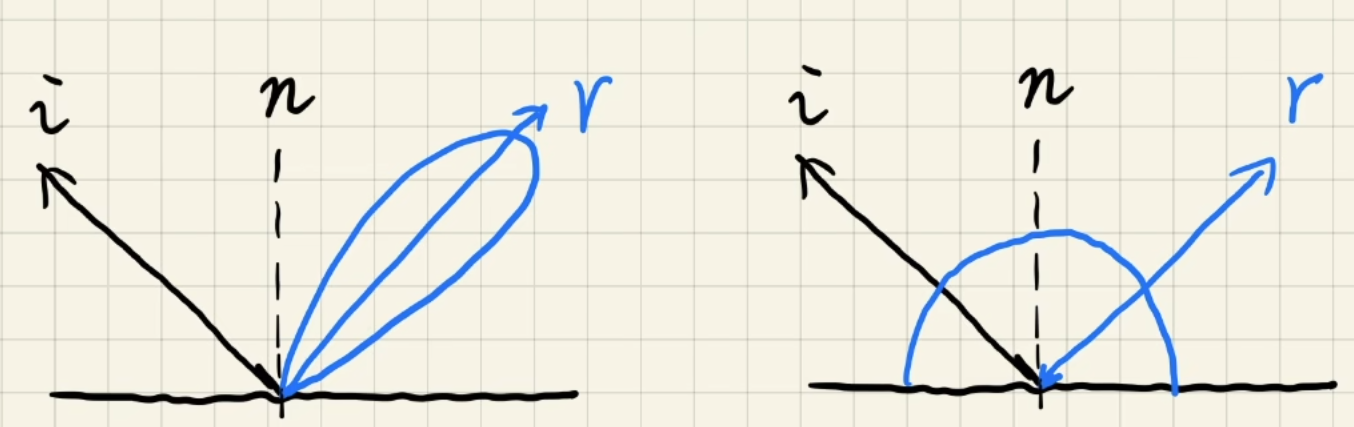 i n r i n r